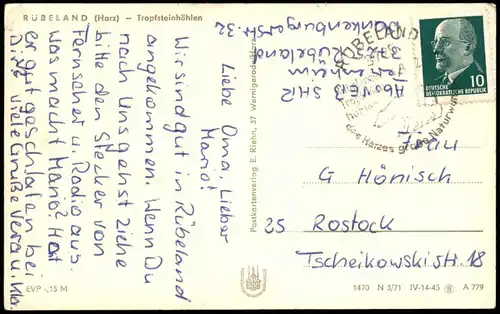 RÜBELAND (Harz) - Tropfsteinhöhlen
Abs VEB SHR
Ferienheim
372 Rübeland
Blankenburgerstr. 32
Liebe Oma, Lieber
Mario!
Wir sind gut in Rübeland
angekommen. Wenn Du
nach uns gehst ziehe
bitte den Stecker von
Fernseher u. Radio aus.
Was macht Mario? Hat
er gut geschlafen bei
Dir. Viele Grüße Vera u. Kl.
Postkartenverlag E. Riehn, 37 Wernigerode/Harz
RÜBELAND
des Harzes große Naturwunder
DEUTSCHE
DEMOKRATISCHE REPUBLIK
10
Frau
G Hönisch
25 Rostock
Tscheikowskistr 18
EVP -,15 M
1470 N 3/71 IV-14-45 A 779